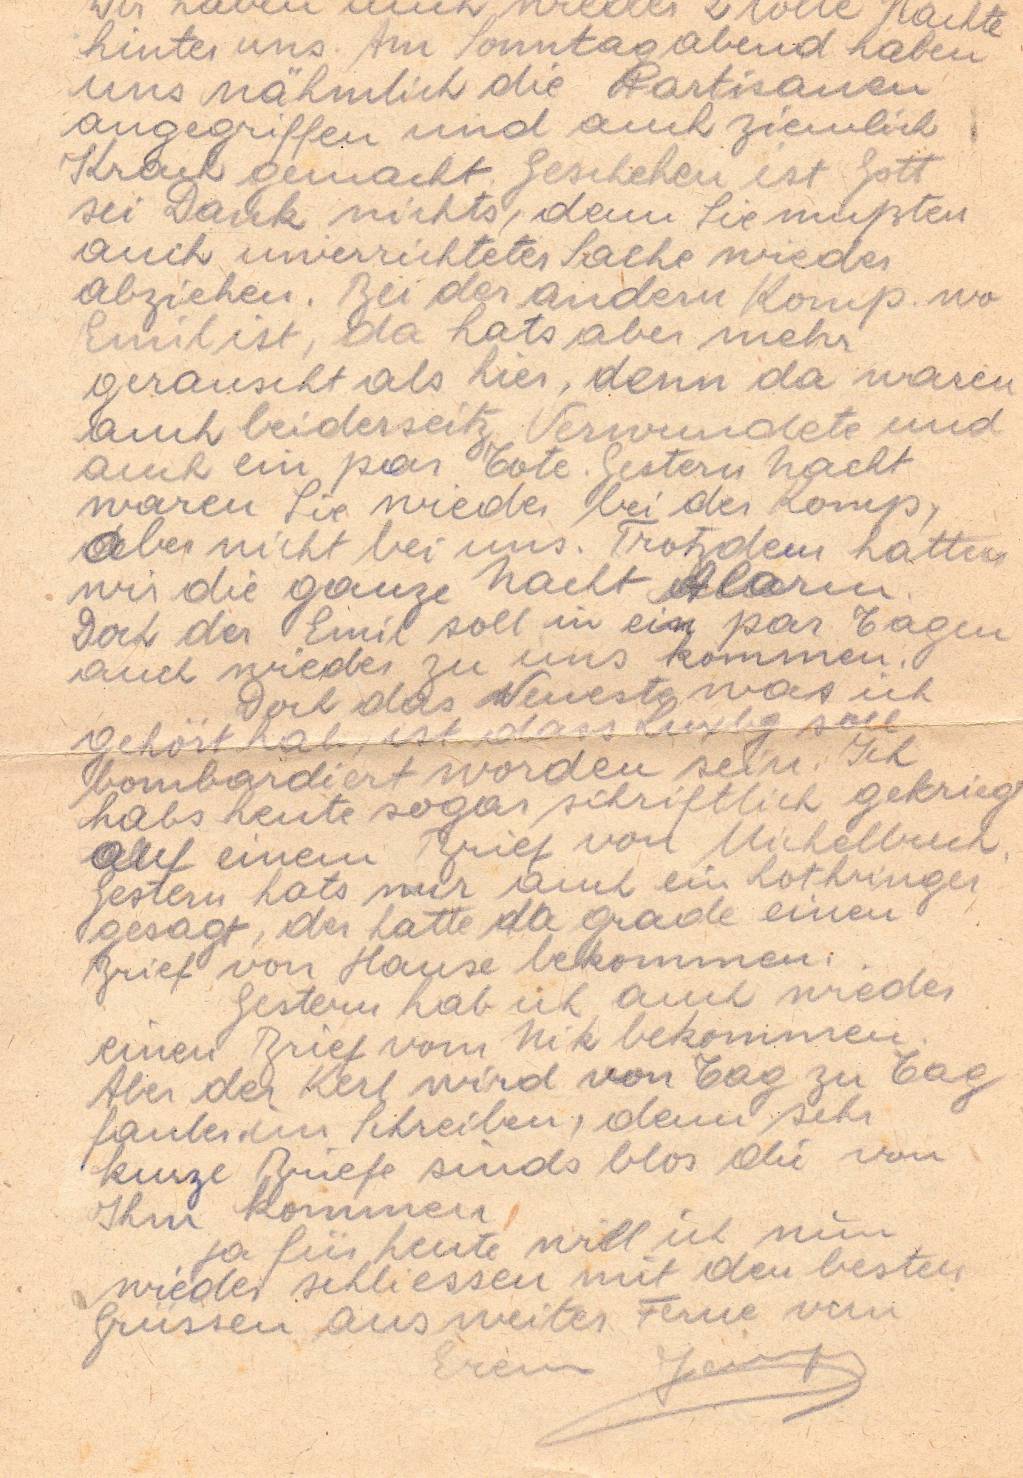 Wir haben auch wieder 2 tolle Nächte
hinter uns. Am Sonntag abend haben
uns nähmlich die Partisanen
angegriffen und auch ziemlich
Krach gemacht. Geschehen ist Gott
sei Dank nichts, denn Sie mußten
auch unverrichteter Sache wieder
abziehen. Bei der andern Komp. wo
Emil ist, da hats aber mehr
gerauscht als hier, denn da waren
auch beiderseitz Verwundete und
auch ein par Tote. Gestern Nacht
waren Sie wieder bei der Komp,
aber nicht bei uns. Trotzdem hatten
wir die ganze Nacht Alarm.
Doch der Emil soll in ein par Tagen
auch wieder zu uns kommen.
Doch das Neueste was ich
gehört hab, ist dass Luxbg soll
bombardiert worden sein. Ich
habs heute sogar schriftlich gekriegt
auf einem Brief von Michelbuch.
Gestern hats mir auch ein Lothringer
gesagt, der hatte da grade einen
Brief von Hause bekommen.
Gestern hab ich auch wieder
einen Brief vom Nik bekommen.
Aber der Kerl wird von Tag zu Tag
fauler im Schreiben, denn sehr
kurze Briefe sinds blos die von
Ihm kommen.
Ja für heute will ich nun
wieder schliessen mit den besten
Grüssen aus weiter Ferne von
Erem